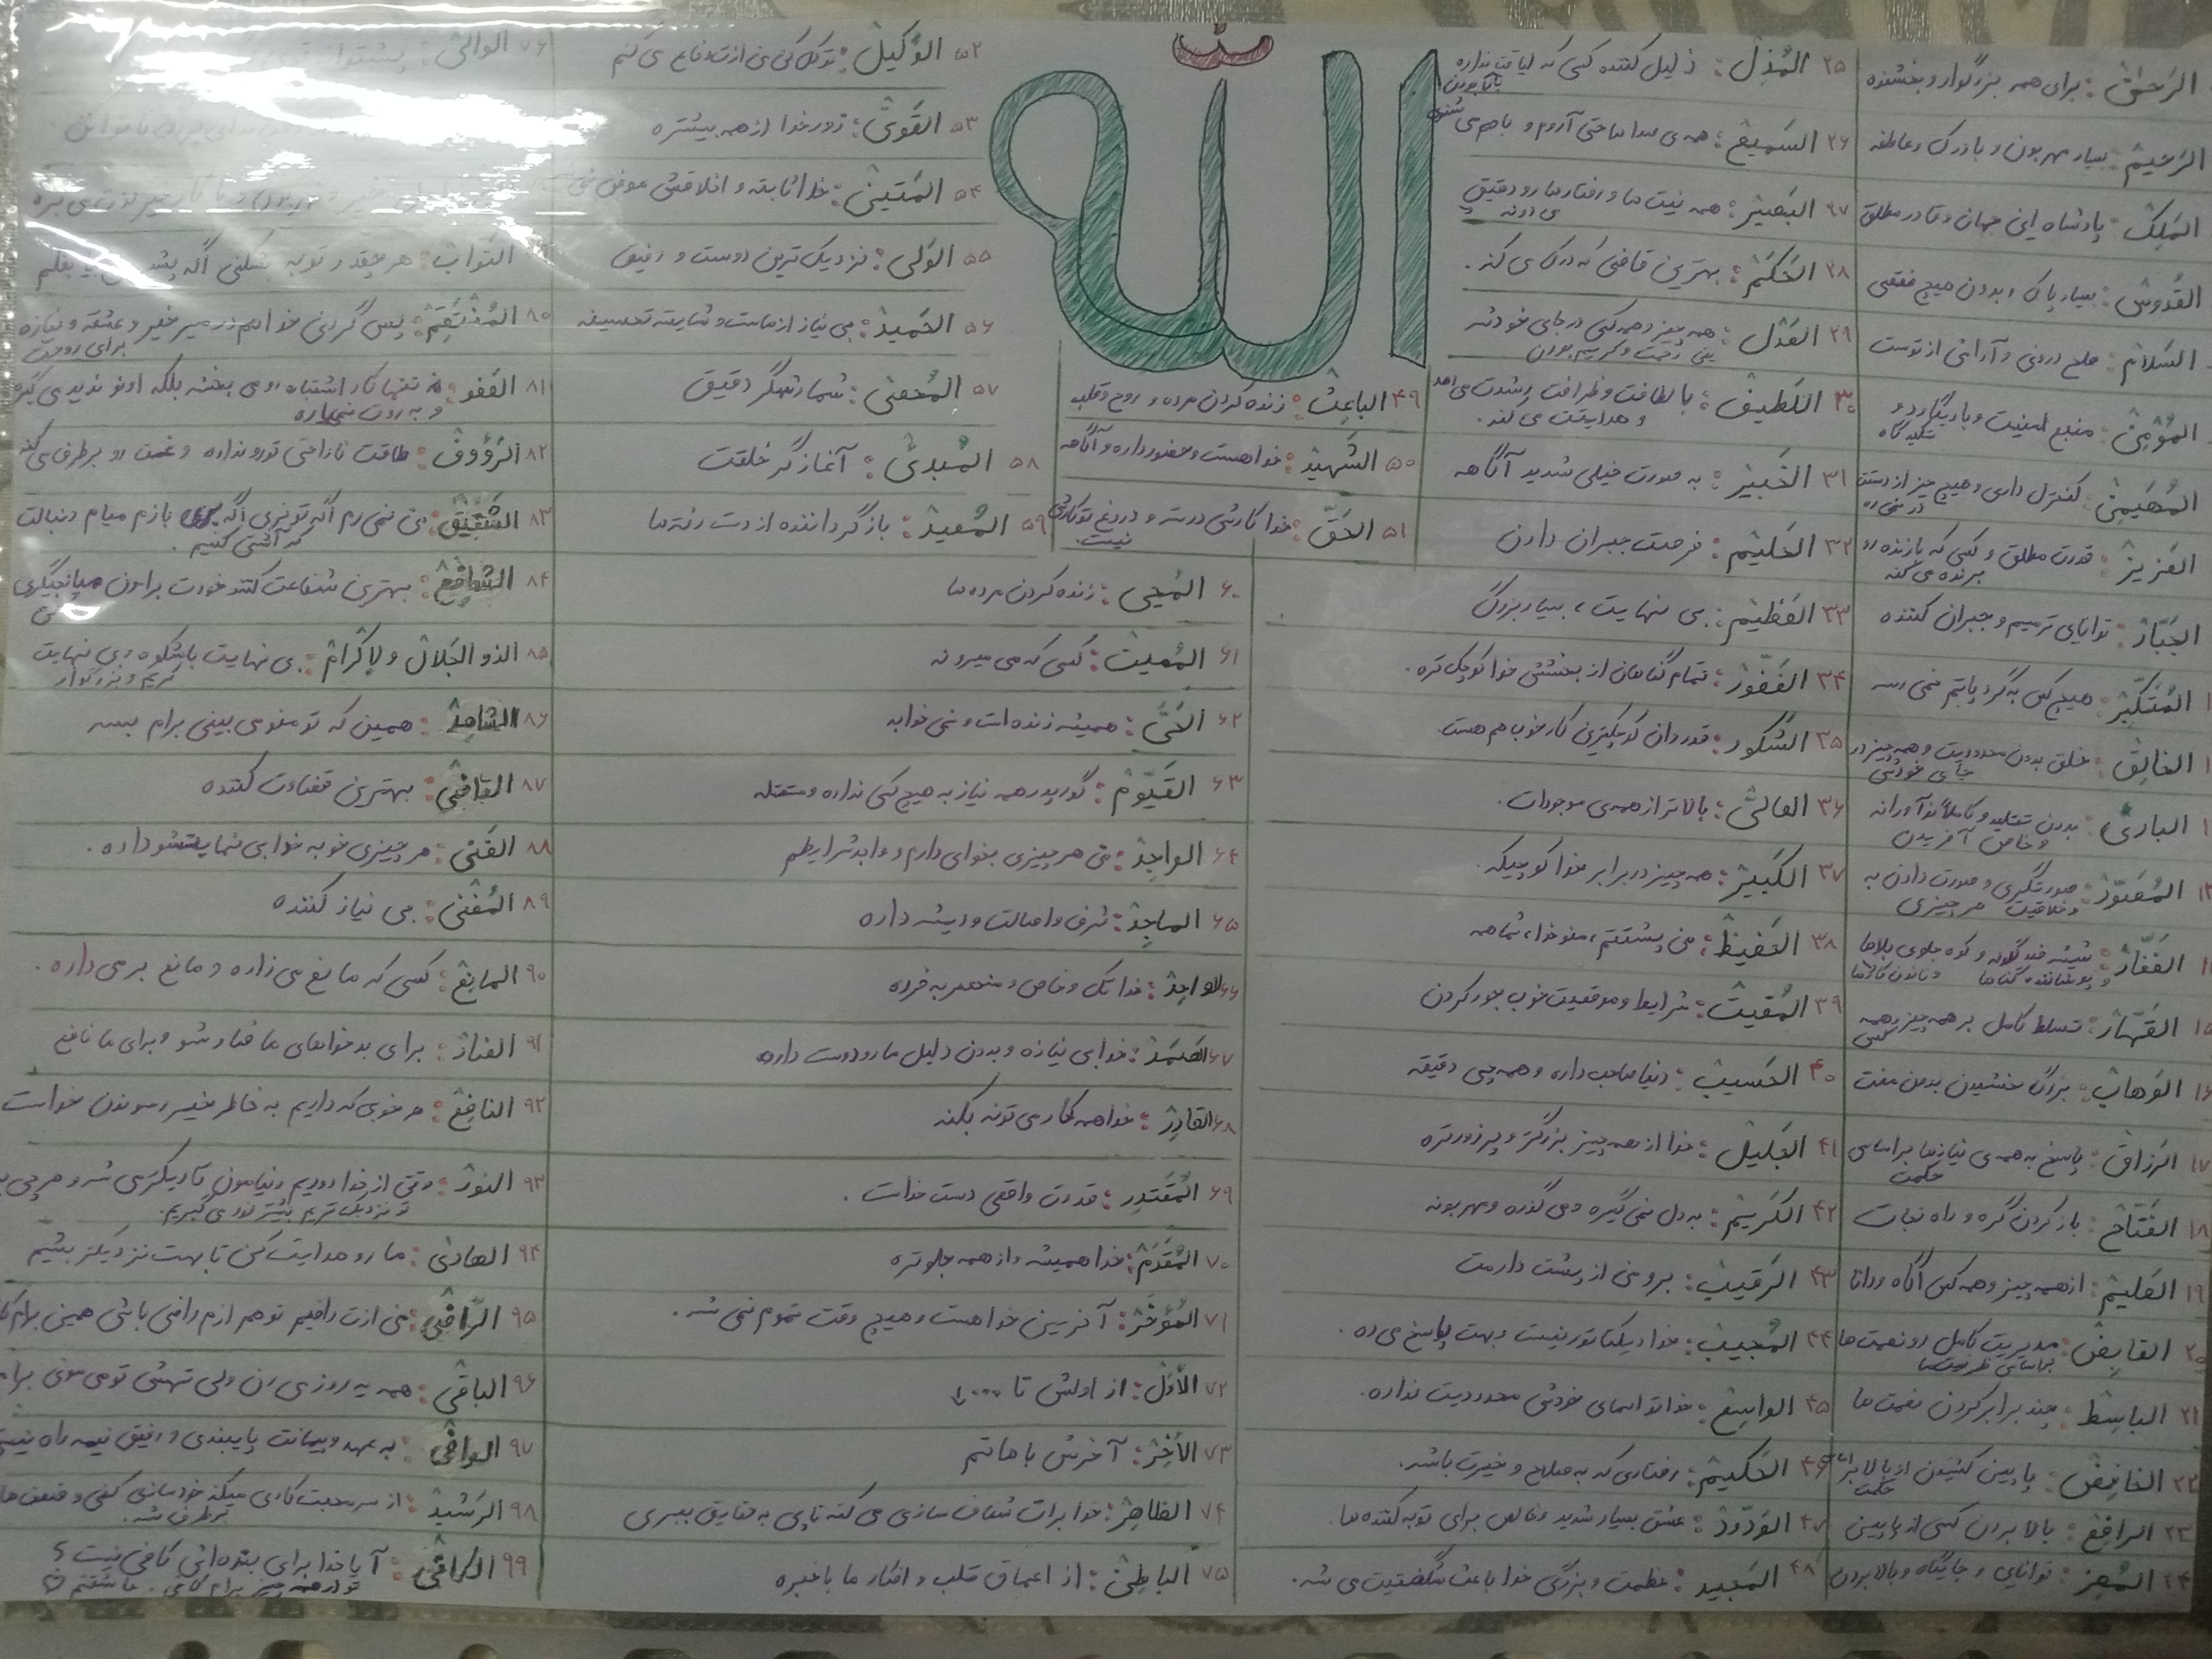 الله
الرَحمن : برای همه بزرگوار و بخشنده
الرَحیم : بسیار مهربون و با درک و عاطفه
المَلِک : پادشاه این جهان و قادر مطلق
القُدوس : بسیار پاک و بدون هیچ نقصی
السَلام : صلح درونی و آرامش از توست
المؤمِن : منبع امنیت و یادیگارد و
تکیه گاه
المُهَیمِن : کنترل داری و هیچ چیز از دستت
در نمی ره
العَزیز : قدرت مطلق و کسی که بازنده رو
برنده می کنه
الجَبّار : توانایی ترمیم و جبران کننده
المُتَکَبِّر : هیچ کس به گرد پاتم نمی رسه
الخالِق : خلق بدون محدودیت و همه چیز در
جای خودش
الباریُ : بدون تقلید و کاملاً نوآورانه
و خاص آفریدن
۱۳ المُصَوّر : صورتگری و صورت دادن به
و خلاقیت هر چیزی
الغَفّار : شیشه ضد گلوله و کوه جلوی بلاها
و پوشاننده گناه ها
۱۵ القَهّار : تسلط کامل بر همه چیز و همه
کس
۱۶ الوَهاب : بزرگ بخشیدن بدون منت
۱۷ الرَزاق : پاسخ به همه ی نیازها بر اساس
حکمت
۱۸ الفَتّاح : باز کردن گره و راه نجات
۱۹ العَلیم : از همه چیز و همه کس آگاه و دانا
۲۰ القابِض : مدیریت کامل رو نعمت ها
بر اساس ظرفیت ها
۲۱ الباسِط : چند برابر کردن نعمت ها
۲۲ الخافِض : پایین کشیدن از بالا بر اساس
حکمت
۲۳ الرافِع : بالا بردن کسی از پایین
۲۴ المُعِز : توانایی و جایگاه و بالا بردن
۲۵ المُذِل : ذلیل کننده کسی که لیاقت نداره
با بودن
۲۶ السَمیع : همه ی صداها حتی آروم و با هم می شنوی
۲۷ البَصیر : همه نیت ها و رفتارها رو دقیق
می دونه
۲۸ الحَکَم : بهترین قاضی که درک می کنه .
۲۹ العَدل : همه چیز و همه کس در جای خودشه
یعنی رحمت و کریم بودن
۳۰ اللَطیف : با لطافت و ظرافت رشدت می دهد
و هدایتت می کند .
۳۱ الخَبیر : به صورت خیلی شدید آگاهه
۳۲ الحَلیم : فرصت جبران دادن
۳۳ العَظیم : بی نهایت ، بسیار بزرگ
۳۴ الغَفور : تمام گناهان از بخشش خدا کوچک تره .
۳۵ الشَکور : قدردان کوچکترین کار خوب هم هست
۳۶ العالیُ : بالاتر از همه ی موجودات .
۳۷ الکَبیر : همه چیز در برابر خدا کوچیکه .
۳۸ الحَفیظ : من پشتتم ، منو خدا ، شما همه
۳۹ المُقیت : شرایط و موقعیت خوب جور کردن
۴۰ الحَسیب : دنیا صاحب داره و همه چی دقیقه
۴۱ الجَلیل : خدا از همه چیز بزرگتر و پر زورتره
۴۲ الکَریم : به دل نمی گیره و می گذره و مهربونه
۴۳ الرَقیب : برو من از پشت دارمت
۴۴ المُجیب : خدا دیکتاتور نیست و بهت پاسخ می ده .
۴۵ الواسِع : خدا تو اسمای خودش محدودیت نداره .
۴۶ الحَکیم : رفتاری که به صلاح و خیرت باشه .
۴۷ الوَدّود : عشق بسیار شدید و خالص برای توبه کننده ها .
۴۸ المَجید : عظمت و بزرگی خدا باعث شگفتیت می شه .
۴۹ الباعِث : زنده کردن مرده و روح و قلب
۵۰ الشَهید : خدا هست و حضور داره و آگاهه
۵۱ الحَقّ : خدا کارش درسته و دروغ تو کارش
نیست
۵۲ الوَکیل : توکل کن من ازت دفاع می کنم
۵۳ القَویُّ : زور خدا از همه بیشتره
۵۴ المَتین : خدا ثابته و اخلاقش عوض نمی
۵۵ الوَلی : نزدیک ترین دوست و رفیق
۵۶ الحَمید : بی نیاز از ماست و شایسته تحسینه
۵۷ المُحصی : شمارشگر دقیق
۵۸ المُبدیُ : آغازگر خلقت
۵۹ المُعید : بازگرداننده از دست رفته ها
۶۰ المُحیی : زنده کردن مرده ها
۶۱ المُمیت : کسی که می میرونه
۶۲ الحَیُّ : همیشه زنده است و نمی خوابه
۶۳ القَیّوم : گور پدر همه نیاز به هیچ کس نداره و مستقله
۶۴ الواجِد : من هر چیزی بخوای دارم و واجد شرایطم
۶۵ الماجِد : شرف و اصالت و ریشه داره
۶۶ الواحِد : خدا تک و خاص و منحصر به فرده
۶۷ الصَمَد : خدا بی نیازه و بدون دلیل ما رو دوست داره
۶۸ القادِر : خدا همه کار می تونه بکنه
۶۹ المُقتَدِر : قدرت واقعی دست خداست .
۷۰ المُقَدَم : خدا همیشه و از همه جلوتره
۷۱ المؤَخَّر : آخرین خدا هست و هیچ وقت تموم نمی شه .
۷۲ الأوّل : از اولش تا
۷۳ الآخِر : آخرش باهاتم
۷۴ الظاهِر : خدا برات شفاف سازی می کنه تا پی به حقایق ببری
۷۵ الباطِن : از اعماق قلب و افکار ما باخبره
۷۶ الوالی :
التَواب : هر چقدر توبه بشکنی اگه بغلم
۸۰ المُنتَقِم : پس گردنی خدا هم در مسیر خیر و عشقه و نیازه
برای روحت
۸۱ العَفو : نه تنها کار اشتباه رو می بخشه بلکه اونو ندید می گیره
و به روت نمیاره
۸۲ الرَؤوف : طاقت ناراحتی تورو نداره و غمت رو برطرف می کنه
۸۳ الشَفیق : من نمی رم اگه تو نری اگه بری بازم میام دنبالت
که آشتی کنیم .
۸۴ الشافِع : بهترین شفاعت کننده خودت برامون میانجیگری
کن
۸۵ الذو الجَلال و لاِکرام : بی نهایت باشکوه و بی نهایت
کریم و بزرگوار
۸۶ الشاهِد : همین که تو منو می بینی برام بسه
۸۷ القاضی : بهترین قضاوت کننده
۸۸ الغَنی : هر چیزی خوبه خدا بی نهایتشو داره .
۸۹ المُغنی : بی نیاز کننده
۹۰ المانِع : کسی که مانع می زاره و مانع برمی داره .
۹۱ الضار : برای بدخواهای ما ضار شو و برای ما نافع
۹۲ النافِع : هر خوبی که داریم به خاطر خیر رسوندن خداست
۹۳ النور : وقتی از خدا دوریم دنیامون تاریکتر می شه و هر چی
نزدیک تریم بیشتر نور می گیریم .
۹۴ الهادی : ما رو هدایت کن تا بهت نزدیکتر بشیم
۹۵ الرّاضی : من ازت راضیم تو هم ازم راضی باشی همین برام
۹۶ الباقی : همه یه روز می رن ولی تهش تو می مونی برام
۹۷ الوافی : به عهد و پیمانت پایبندی و رفیق نیمه راه نیستی
۹۸ الرَشید : از سر محبت کاری میکنه خودسازی کنی و ضعف ها
برطرف شه .
۹۹ الکافی : آیا خدا برای بنده اش کافی نیست ؟
تو از همه چیز برام کافی . عاشقتم